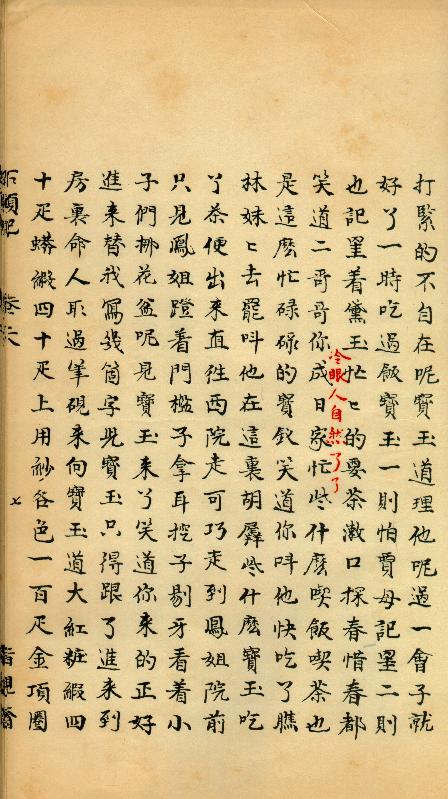 打緊的不自在呢寶玉道理他呢過一會子就
好了一時吃過飯寶玉一則怕賈母記罣二則
也記罣着黛玉忙忙的要茶漱口探春惜春都
笑道二哥哥你成日家忙些什麽喫飯喫茶也
冷眼人自然了了
是這麽忙碌碌的寶釵笑道你呌他快吃了瞧
林妹妹去罷呌他在這裏胡羼些什麽寶玉吃
了茶便出來直往西院走可巧走到鳳姐院前
只見鳳姐蹬着門檻子拿耳挖子剔牙看着小
子們挪花盆呢見寶玉來了笑道你來的正好
進來替我寫幾個字兒寶玉只得跟了進來到
房裏命人取過筆硯來向寶玉道大紅粧緞四
十疋蟒緞四十疋上用紗各色一百疋金項圈